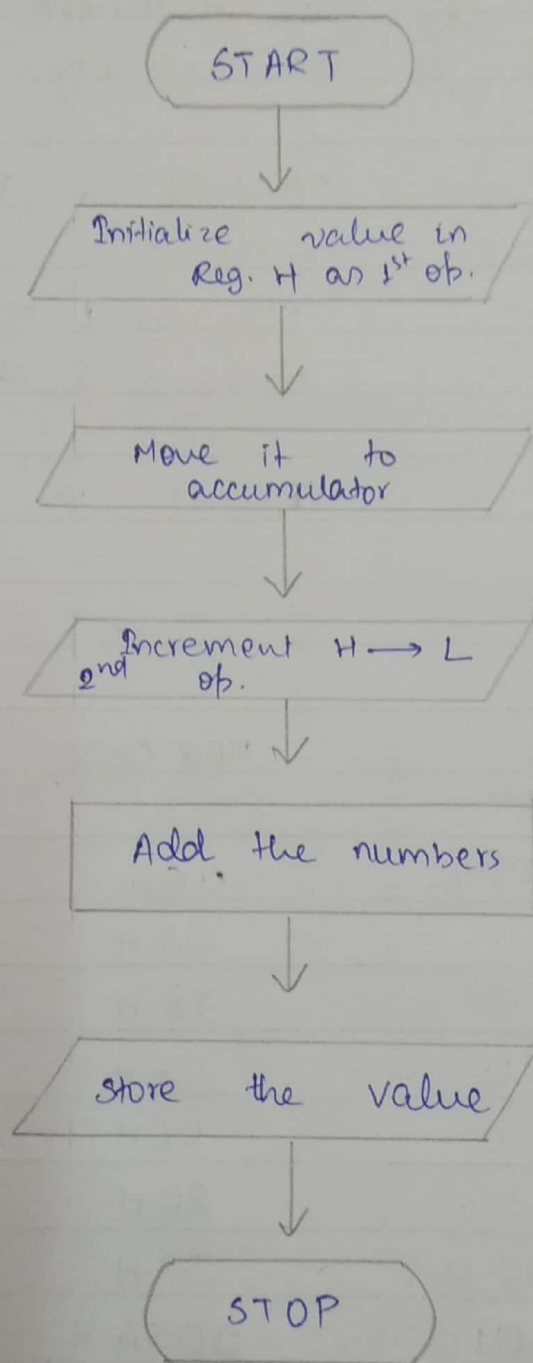 START
Initialize value in
Reg. H as 1st op.
Move it to
accumulator
Increment H → L
2nd op.
Add the numbers
store the value
STOP